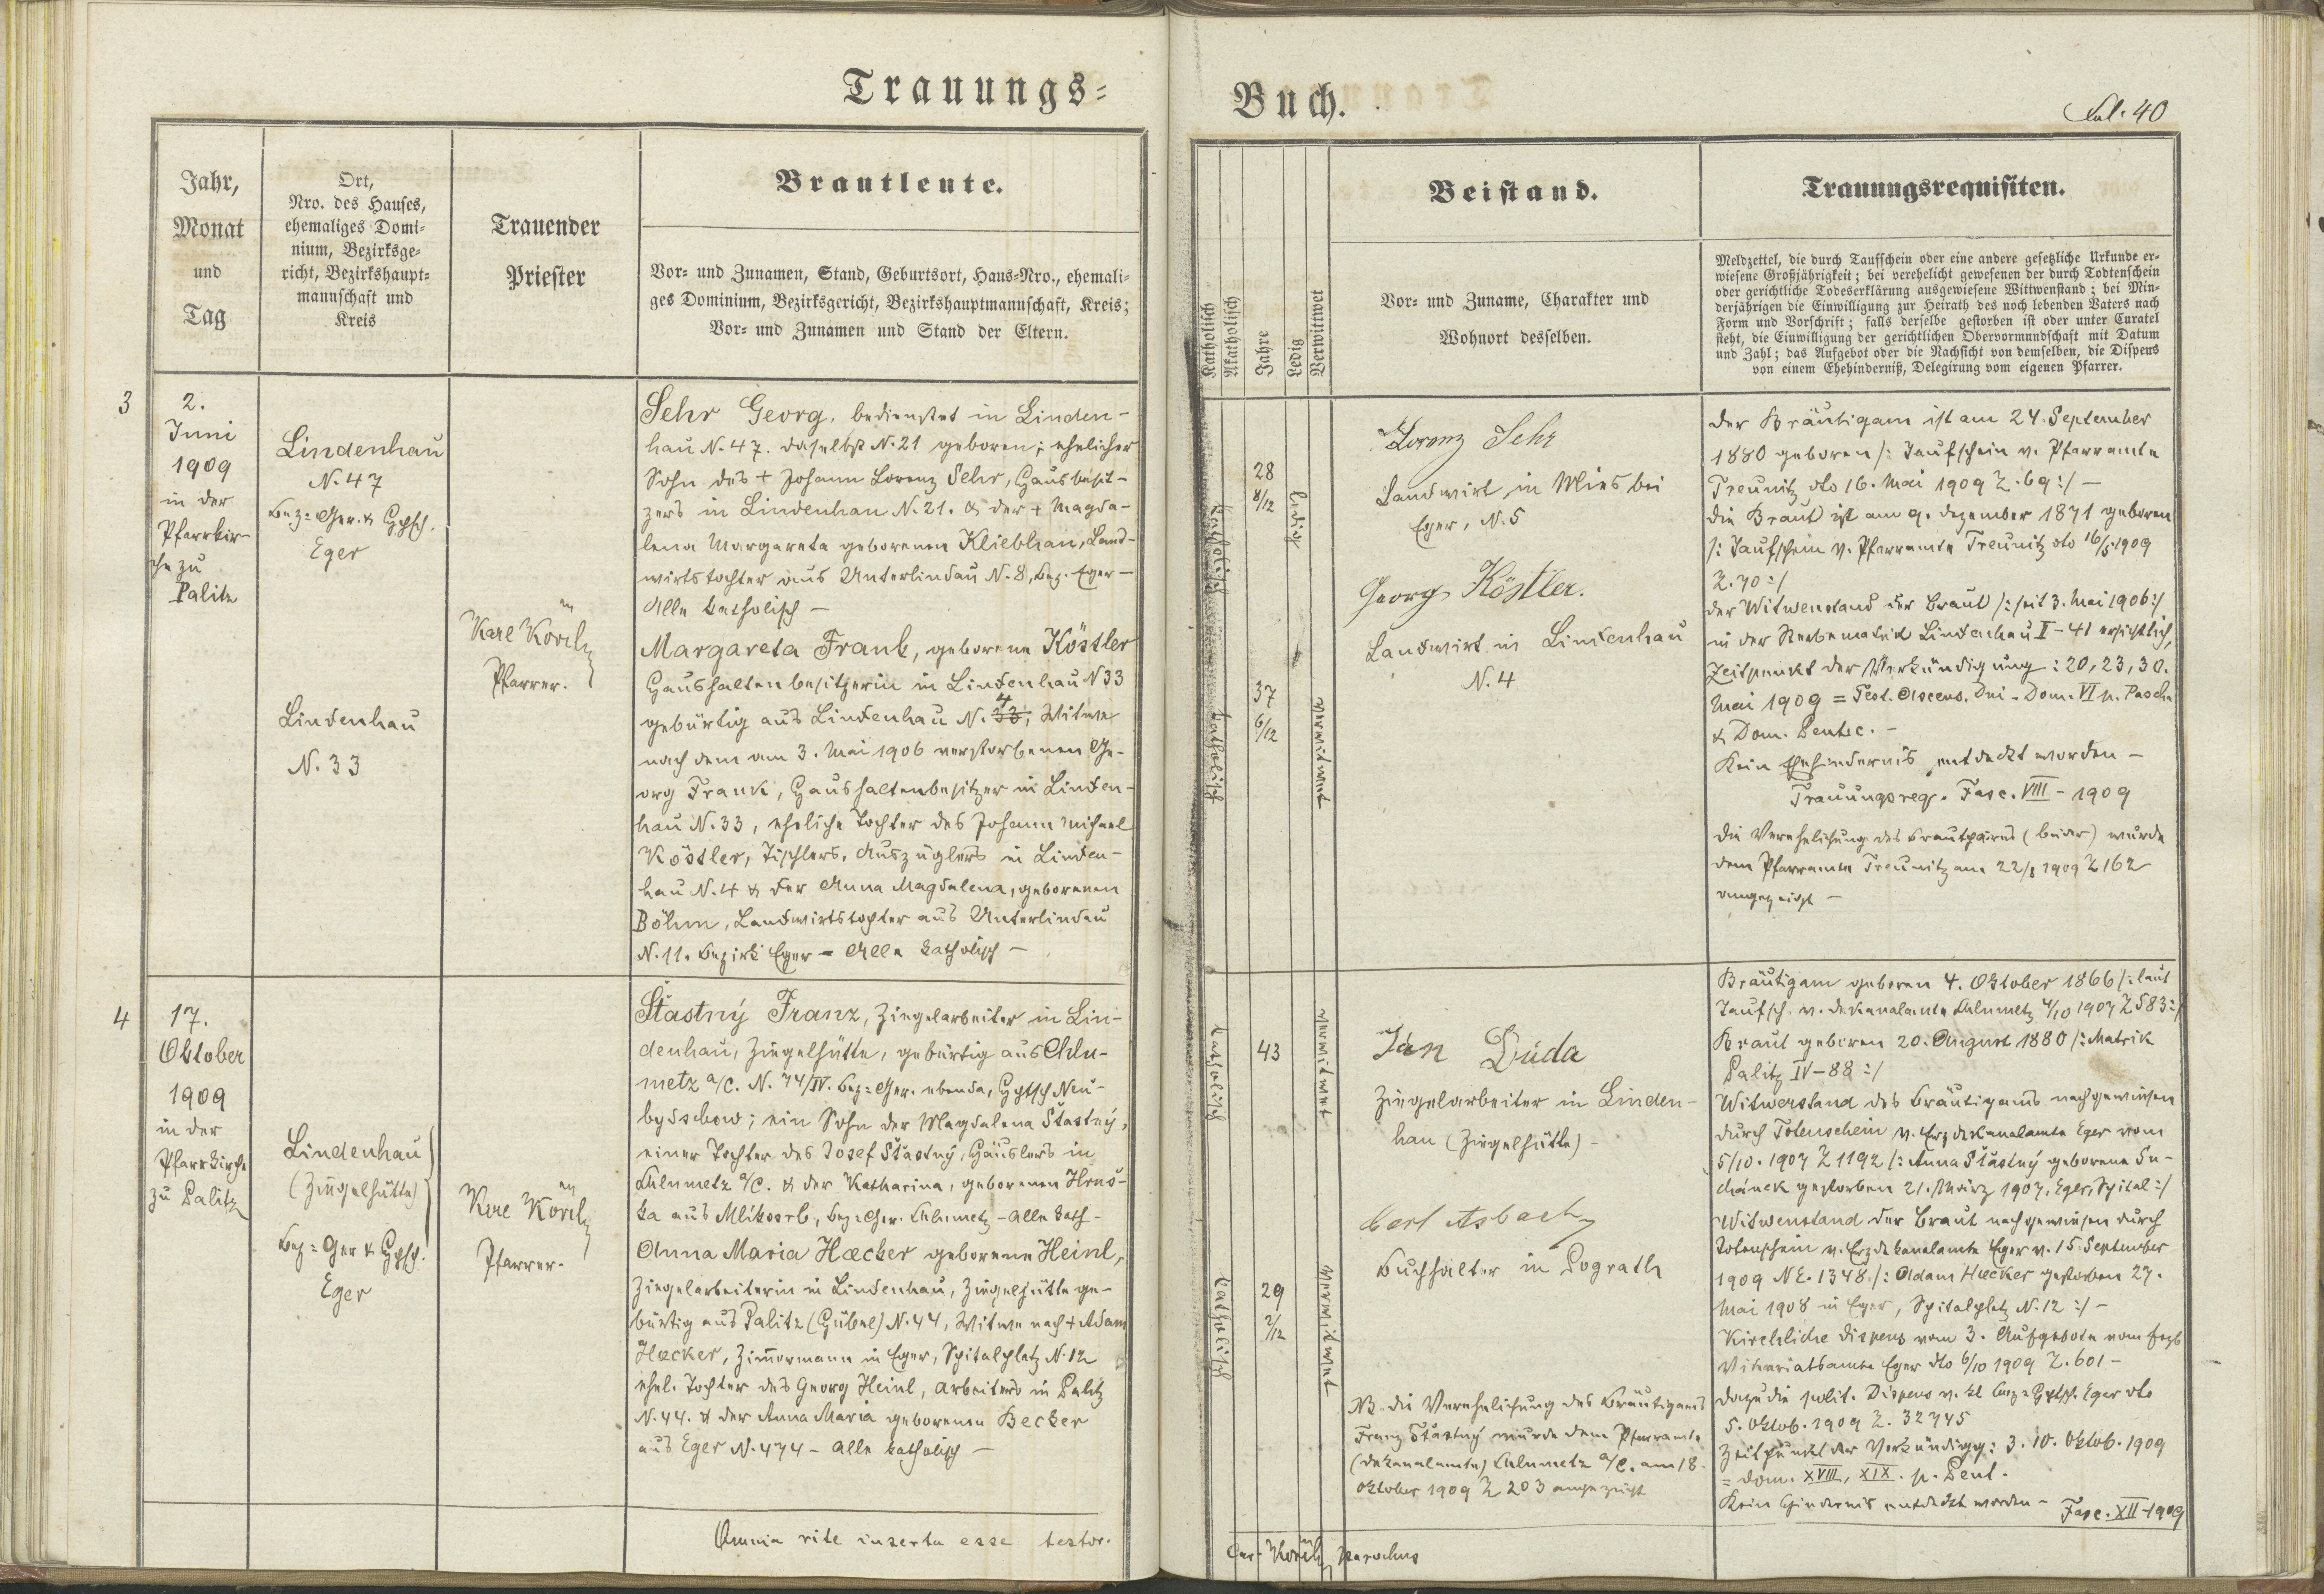 Trauungs=
Jahr,
Monat
und
Tag
Ort,
Nro. des Hauses,
ehemaliges Domi-
nium, Bezirksge-
richt, Bezirkshaupt=
mannschaft und
Kreis
Trauender
Priester
Brautleute.
Vor- und Zunamen, Stand, Geburtsort, Haus-Nro., ehemali-
ges Dominium, Bezirksgericht, Bezirkshauptmannschaft, Kreis;
Vor- und Zunamen und Stand der Eltern.
3
2.
Juni
1909
in der
Pfarrkir-
che zu
Palitz
Lindenhau
N. 47
Bez=Ger. &
Eger
Lindenhau
N. 33
Pfarrer.
Sehr Georg, bedienstet in Linden-
hau N. 47. daselbst N. 21 geboren; ehelicher
Sohn des + Johann Lorenz Sehr, Hausbesit-
zers in Lindenhau N. 21. & der + Magda-
lena Margareta geborenen Kliebhan, Land-
wirtstochter aus Unterlindau N. 8, Bez. Eger –
Alle katholisch –
Margareta Frank, geborene Köstler
Haushaltenbesitzerin in Lindenhau N 33
gebürtig aus Lindenhau N. 4 33, Witwe
nach dem am 3. Mai 1906 verstorbenen Ge-
org Frank, Haushaltenbesitzer in Linden-
hau N. 33, eheliche Tochter des Johann Michael
Köstler, Tischlers, Auszüglers in Linden-
hau N. 4 & der Anna Magdalena, geborenen
Böhm, Landwirtstochter aus Unterlindau
N. 11. Bezirk Eger – Alle katholisch –
4
17.
Oktober
1909
in der
Pfarrkirche
zu Palitz
Lindenhau
(Ziegelhütte)
Bez=Ger &
Eger
Pfarrer.
Šťastný Franz, Ziegelarbeiter in Lin-
denhau, Ziegelhütte, gebürtig aus Chlu-
metz a/C. N. 74/IV. Bez=Ger. ebenda, Neu-
bydschow; ein Sohn der Magdalena Šťastný,
einer Tochter des Josef Šťastný, Häuslers in
Chlumetz a/C. & der Katharina, geborenen Hruš-
ka aus Mlikosrb, Bez=Ger. Chlumetz – Alle kath –
Anna Maria Hæcker geborene Heinl,
Ziegelarbeiterin in Lindenhau, Ziegelhütte ge-
bürtig aus Palitz (Gübel) N. 44, Witwe nach + Adam
Hæcker, Zimmermann in Eger, Spitalplatz N. 12
ehel. Tochter des Georg Heinl, Arbeiters in Palitz
N. 44. & der Anna Maria geborenen Becker
aus Eger N. 474 – Alle katholisch –
Omnia rite inserta esse testor.
Buch.
Fol. 40
Katholisch
Akatholisch
Jahre
Ledig
Verwittwet
Beistand.
Vor- und Zuname, Charakter und
Wohnort desselben.
Trauungsrequisiten.
Meldzettel, die durch Taufschein oder eine andere gesetzliche Urkunde er-
wiesene Großjährigkeit; bei verehelicht gewesenen der durch Todtenschein
oder gerichtliche Todeserklärung ausgewiesene Wittwenstand; bei Min-
derjährigen die Einwilligung zur Heirath des noch lebenden Vaters nach
Form und Vorschrift; falls derselbe gestorben ist oder unter Curatel
steht, die Einwilligung der gerichtlichen Obervormundschaft mit Datum
und Zahl; das Aufgebot oder die Nachsicht von demselben, die Dispens
von einem Ehehinderniß, Delegirung vom eigenen Pfarrer.
katholisch
28
8/12
ledig
katholisch
37
6/12
verwitwet
Lorenz Sehr
Landwirt in Mies bei
Eger, N. 5
Georg Köstler.
Landwirt in Lindenhau
N. 4
Der Bräutigam ist am 24. September
1880 geboren /: Taufschein v. Pfarramte
Treunitz dto 16. Mai 1909 Z. 69 :/ –
die Braut ist am 9. Dezember 1871 geboren
/: Taufschein v. Pfarramte Treunitz dto 16/5 1909
Z. 70 :/
der Witwenstand der Braut /: seit 3. Mai 1906 :/
in der Sterbematrik Lindenhau I – 41 ersichtlich,
Zeitpunkt der Verkündigung: 20, 23, 30.
Mai 1909 = Fest. Ascens. Dni – Dom. VI p. Pascha
& Dom. Pentec. –
Kein Ehehindernis entdeckt worden –
Trauungsreg. Fasc. VIII – 1909
Die Verehelichung des Brautpaares (beider) wurde
dem Pfarramte Treunitz am 22/8 1909 Z 162
angezeigt –
katholisch
43
verwitwet
katholisch
29
2/12
verwitwet
Jan Duda
Ziegelarbeiter in Linden-
hau (Ziegelhütte) –
Carl Asbach
Buchhalter in Pograth
NB die Verehelichung des Bräutigams
Franz Šťastný wurde dem Pfarramte
(Dekanalamte) Chlumetz a/C. am 18.
Oktober 1909 Z 203 angezeigt
Bräutigam geboren 4. Oktober 1866 /: laut
Taufsch. v. Dekanalamte Chlumetz 4/10 1907 Z 583 :/
Braut geboren 20. August 1880 /: Matrik
Palitz IV – 88 :/
Witwerstand des Bräutigams nachgewiesen
durch Totenschein v. Erzdekanalamte Eger vom
5/10. 1907 Z 1192 /: Anna Šťastný geborene Su-
chánek gestorben 21. März 1907, Eger, Spital :/
Witwenstand der Braut nachgewiesen durch
Totenschein v. Erzdekanalamte Eger v. 15. September
1909 NE. 1348 /: Adam Hæcker gestorben 27.
Mai 1908 in Eger, Spitalplatz N. 12 :/ –
Kirchliche Dispens vom 3. Aufgebote vom
Vikariatsamte Eger dto 6/10 1909 Z. 601 –
dazu die polit. Dispens v. Eger dto
5. Oktob. 1909 Z. 32745
Zeitpunkt der Verkündigg: 3. 10. Oktob. 1909
= Dom. XVIII, XIX. p. Pent.
Kein Hindernis entdeckt worden – Fasc. XII – 1909
parochus